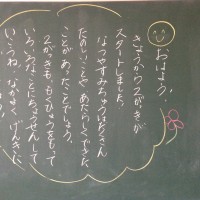 おはよう！
きょうから２がっきが
スタートしました。
なつやすみちゅうはたくさん
たのしいことやあたらしくできた
ことがあったことでしょう。
２がっきも、もくひょうをもって
いろいろなことにちょうせんして
いこうね。なかよく、げんきに、